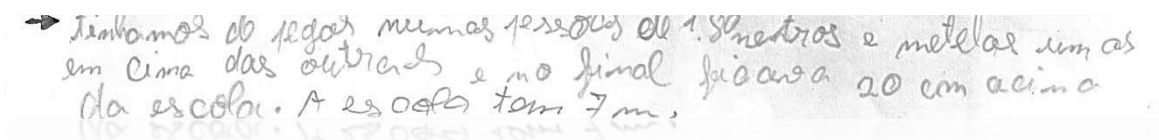 → Tinhamos de pegar numas pessoas de 1.80 metros e metelas umas
em cima das outras e no final ficava 20 cm acima
da escola. A escola tem 7 m.